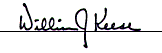 William J Keese